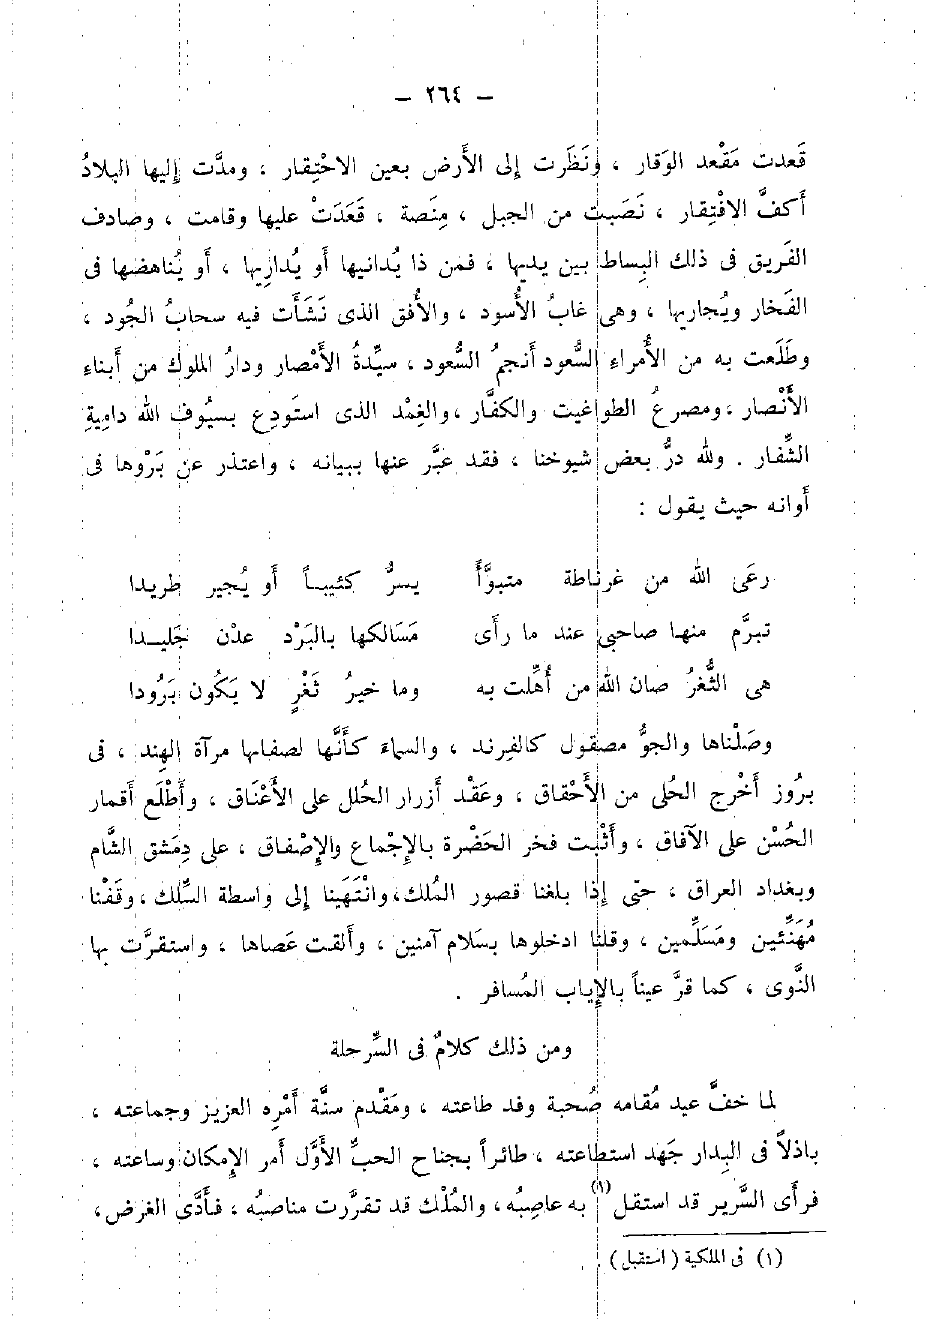 — ٢٦٤ —
قَعدت مَقْعد الوَقار ، ونَظَرت إلى الأَرض بعين الاحْتِقار ، ومدَّت إليها البلادُ
أكفَّ الافْتِقار ، نَصَبت من الجبل ، مِنَصة ، قَعَدَتْ عليها وقامت ، وصادف
الفَريق فى ذلك البِساط بين يديها ، فمن ذا يُدانيها أو يُدازِيها ، أو يُناهضها فى
الفَخار ويُجاريها ، وهى غابُ الأُسود ، والأُفق الذى نَشَأَت فيه سحابُ الجُود ،
وطَلَعت به من الأُمراء السُّعود أنجمُ السُّعود ، سيِّدةُ الأَمْصار ودارُ الملوك من أَبناء
الأَنْصار ، ومصرعُ الطواغيت والكفَّار ، والغِمْد الذى استَودِع بسيُوف الله دامِيةِ
الشِّفار . ولله درُّ بعض شيوخنا ، فقد عبَّر عنها ببيانه ، واعتذر عن بَرْدها فى
أَوانه حيث يقول :
رعَى الله من غرناطة متبوَّأَ يسرُّ كثيبـاً أَو يُجير طريدا
تبرَّم منهـا صاحبى عند ما رأى مَسَالكها بالبَرْد عدْن جَليـدا
هى الثَّغرُ صان الله من أُهِّلت به وما خيرُ ثَغْرٍ لا يَكُون بَرُودا
وصَلْناها والجوُّ مصقول كالفِرند ، والسماء كأَنَّها لصفائها مرآة الهِند ، فى
بُروز أَخْرج الحُلى من الأَحْقاق ، وعَقْد أزرار الحُلل على الأَعْنَاق ، وأَطْلَع أَقمار
الحُسْن على الآفاق ، وأَثْبت فخر الحَضْرة بالإِجْماع والإِصْفاق ، على دِمَشق الشَّام
وبغداد العراق ، حتى إذا بلغنا قصور المُلك، وانْتَهَينا إلى واسطة السِّلك ، وقَفْنا
مُهنِّئين ومُسَلِّمين ، وقلنا ادخلوها بسَلام آمنين ، وأَلقت عَصاها ، واستقرَّت بها
النَّوى ، كما قرَّ عيناً بالإِياب المُسافر .
ومن ذلك كلامٌ فى السِّرحلة
لما خفَّ عبد مُقامه صُحبة وفد طاعته ، ومَقْدم سنَّة أَمْرِه العزيز وجماعته ،
باذلاً فى البِدار جَهد استطاعته ، طائراً بجناح الحبِّ الأَوَّل أَمر الإِمكان وساعته ،
فرأَى السَّرير قد استقل (١) به عاصِبُه، والمُلْك قد تقرَّرت مناصبُه ، فأَدَّى الغرض،
(١) فى الملكية (استقبل) .